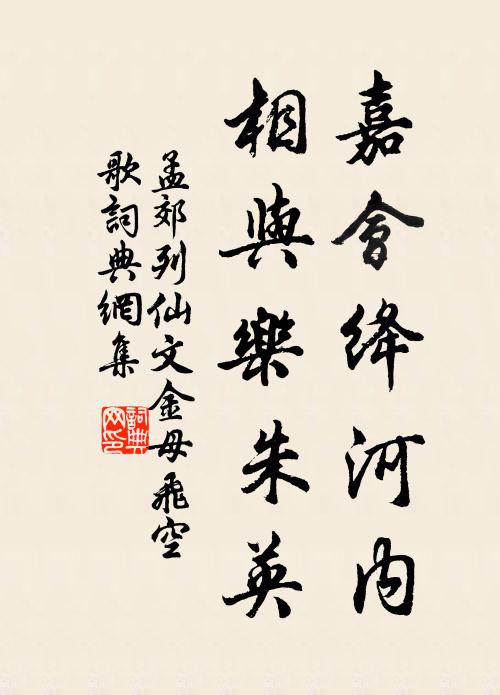 嘉會絳河內
相與樂朱英
孟郊列仙文金母飛空
歌詞典網集
詞典網印